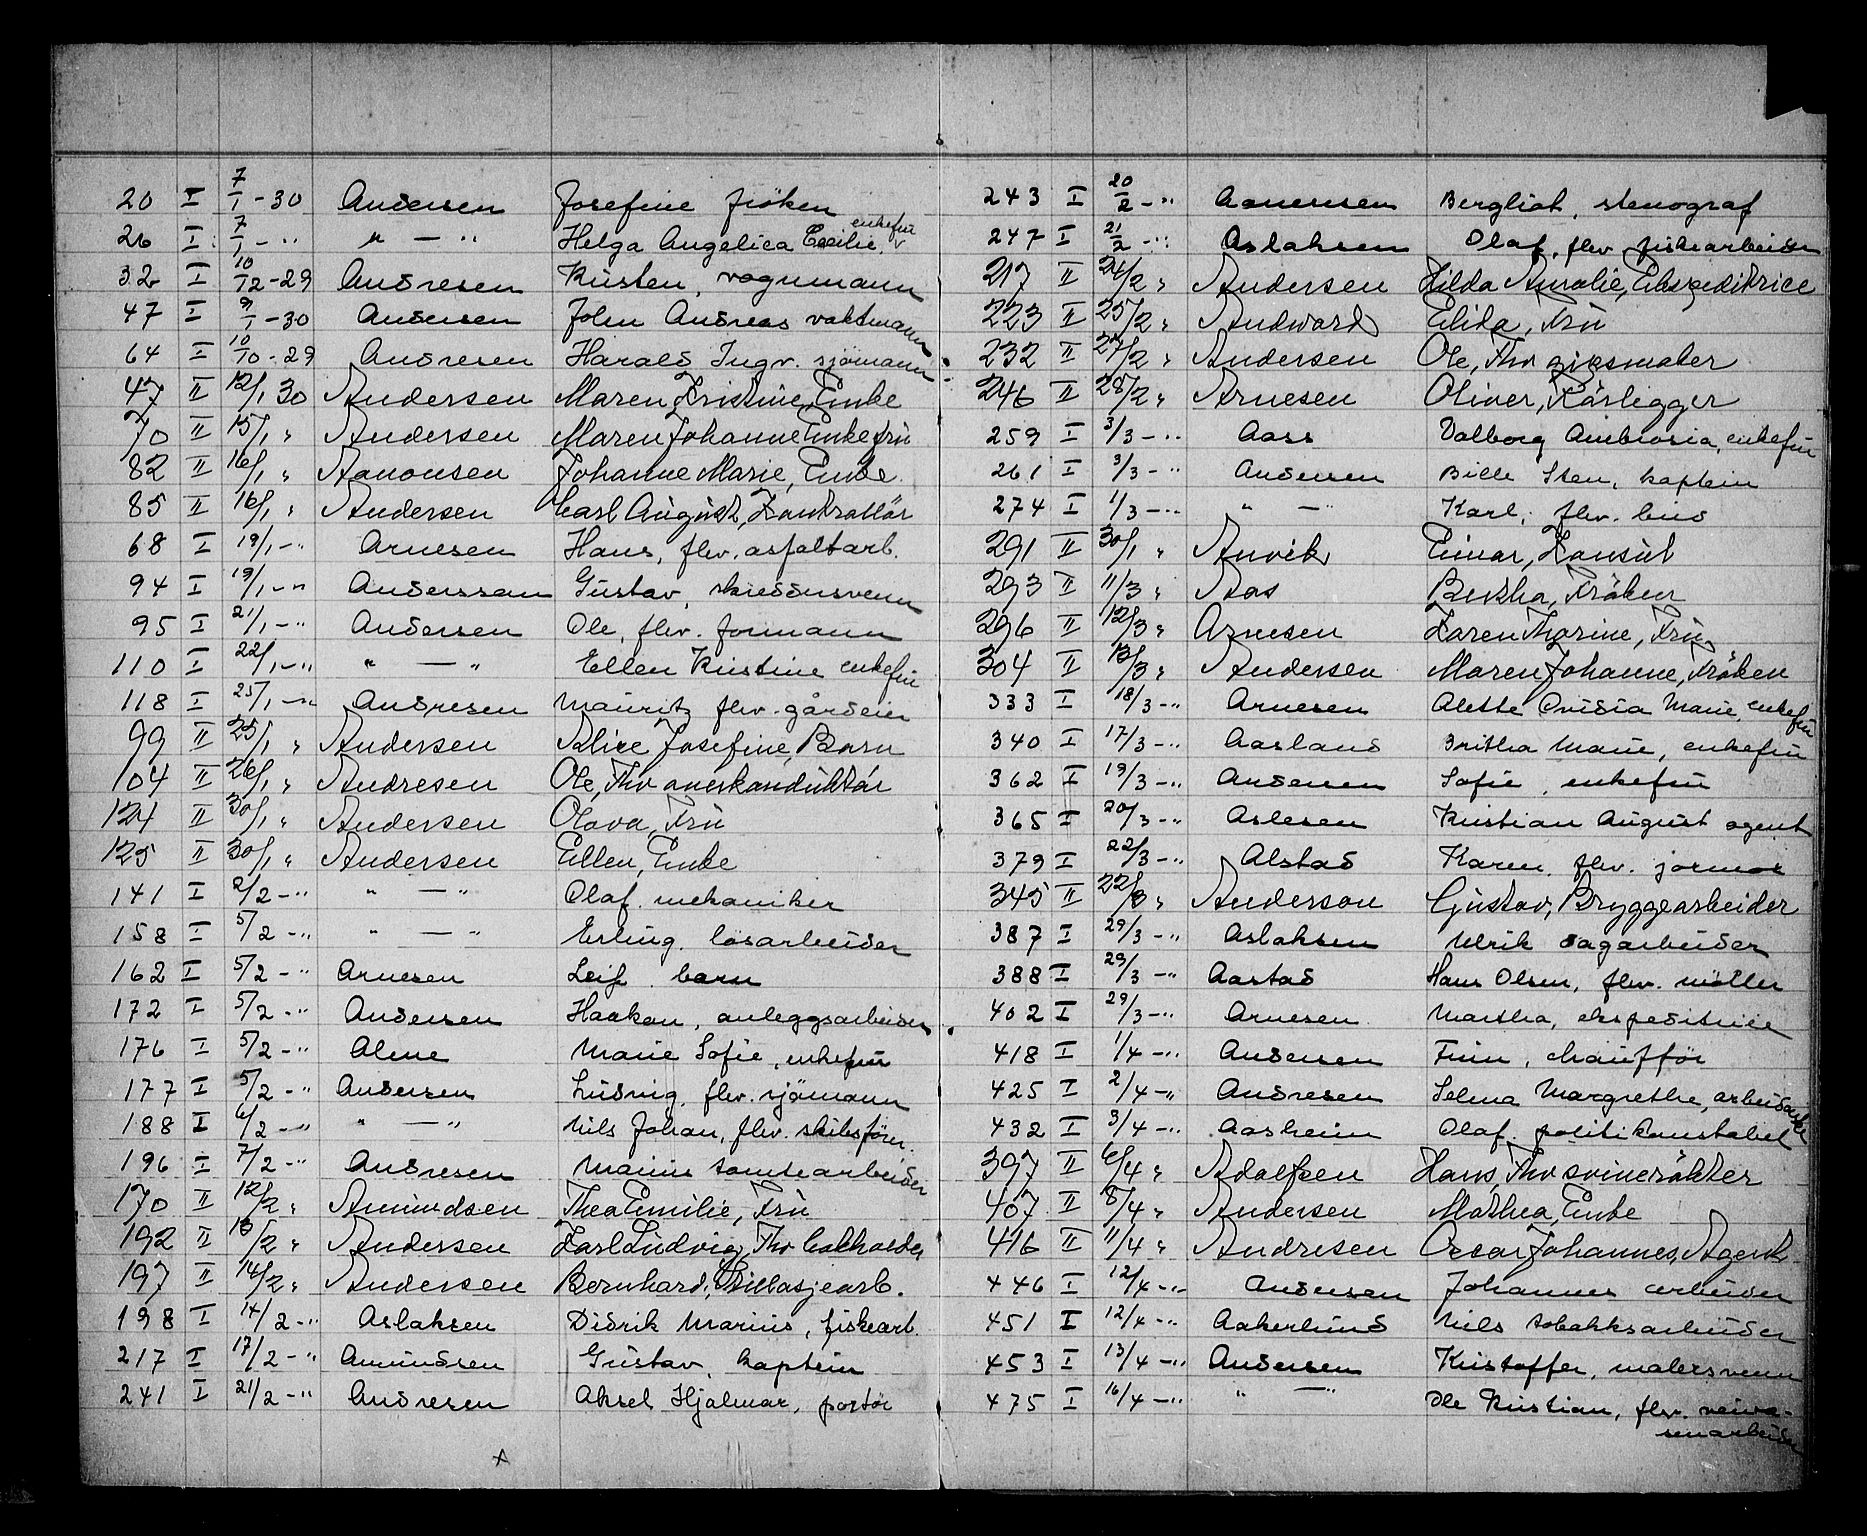 20 I 7/1 - 30 Andersen Josefine fröken
26 I 7/1 - " " — " Helga Angelica Cecilie, enkefru
32 I 10/12 - 29 Andresen Kristen, vognmann
47 I 9/1 - 30 Andersen John Andreas vaktmann
64 I 10/10 - 29 Andresen Harald Ingv. sjömann
47 II 12/1 30 Andersen Maren Kristine, Enke
70 II 15/1 " Andersen Maren Johanne Enkefru
82 II 16/1 " Aanonsen Johanne Marie, Enke
85 II 16/1 " Andersen Carl August, Kontrollör
68 I 19/1 - " Arnesen Hans, flv. asfaltarb.
94 I 19/1 - " Anderssen Gustav, skreddersvenn
95 I 21/1 - " Andersen Ole, flv. formann
110 I 22/1 - " " — " Ellen Kristine enkefru
118 I 25/1 - " Andresen Mauritz flv. gårdeier
99 II 25/1 " Andersen Alice Josefine, Barn
104 II 26/1 " Andresen Ole, Fhv overkonduktör
124 II 30/1 " Andersen Olava, Fru
125 II 30/1 " Andersen Ellen, Enke
141 I 2/2 - " " — " Olaf mekaniker
158 I 5/2 - " " — " Erling lösarbeider
162 I 5/2 - " Arnesen Leif barn
172 I 5/2 - " Andersen Haakon, anleggsarbeider
176 I 5/2 - " Alme Marie Sofie, enkefru
177 I 5/2 - " Andersen Ludvig, flv. sjömann
188 I 6/2 - " " — " Nils Johan, flv. skibsförer
196 I 7/2 - " Andresen Marius tomtearbeider
170 II 12/2 " Amundsen Thea Emilie, Fru
192 II 13/2 " Andersen Karl Ludvig, Fhv
197 II 14/2 " Andersen Bernhard,
198 I 14/2 - " Aslaksen Didrik Marius, fiskearb.
217 I 17/2 - " Amundsen Gustav, kaptein
241 I 21/2 - " Andresen Aksel Hjalmar, portör
243 I 20/2 - " Aanensen Bergliot, stenograf
247 I 21/2 - " Aslaksen Olaf, flv. fiskearbeider
217 II 24/2 " Andersen Hilda Amalie, Ekspeditrice
223 II 25/2 " Andward Elida, Fru
232 II 27/2 " Andersen Ole, Fhv gipsmaker
246 II 28/2 " Arnesen Oliver, Rörlegger
259 I 3/3 - " Aass Valborg Ambrosia, enkefru
261 I 3/3 - " Andersen Bille Sten, kaptein
274 I 1/3 - " " — " Karl, flv. bud
291 II 30/1 " Anvik Einar, Konsul
293 II 11/3 " Aas Bertha, Fröken
296 II 12/3 " Arnesen Karen Thorine, Fru
304 II 13/3 " Andersen Maren Johanne, Fröken
333 I 18/3 - " Arnesen Alette Ovidia Marie, enkefru
340 I 17/3 - " Aasland Britha Marie, enkefru
362 I 19/3 - " Andersen Sofie, enkefru
365 I 20/3 - " Aslesen Kristian August agent
379 I 22/3 - " Alstad Karen, flv. jormor
345 II 22/3 " Anderson Gustav, Bryggearbeider
387 I 29/3 - " Aslaksen Ulrik sagarbeider
388 I 29/3 - " Aastad Hans Olsen, flv. möller
402 I 29/3 - " Arnesen Martha, ekspeditrice
418 I 1/4 - " Andersen Finn, chaufför
425 I 2/4 - " Andresen Selma Margrethe, arbeiderske
432 I 3/4 - " Aasheim Olaf politikonstabel
397 II 6/4 " Adolfsen Hans, Fhv svinerökter
407 II 8/4 " Andersen Mathea, Enke
416 II 11/4 " Andresen Oscar Johannes, Agent
446 I 12/4 - " Andersen Johannes arbeider
451 I 12/4 - " Aakerlund Nils tobakksarbeider
453 I 13/4 - " Andersen Kristoffer, malersvenn
475 I 16/4 - " " — " Ole Kristian, flv. veiv-
senarbeider
x